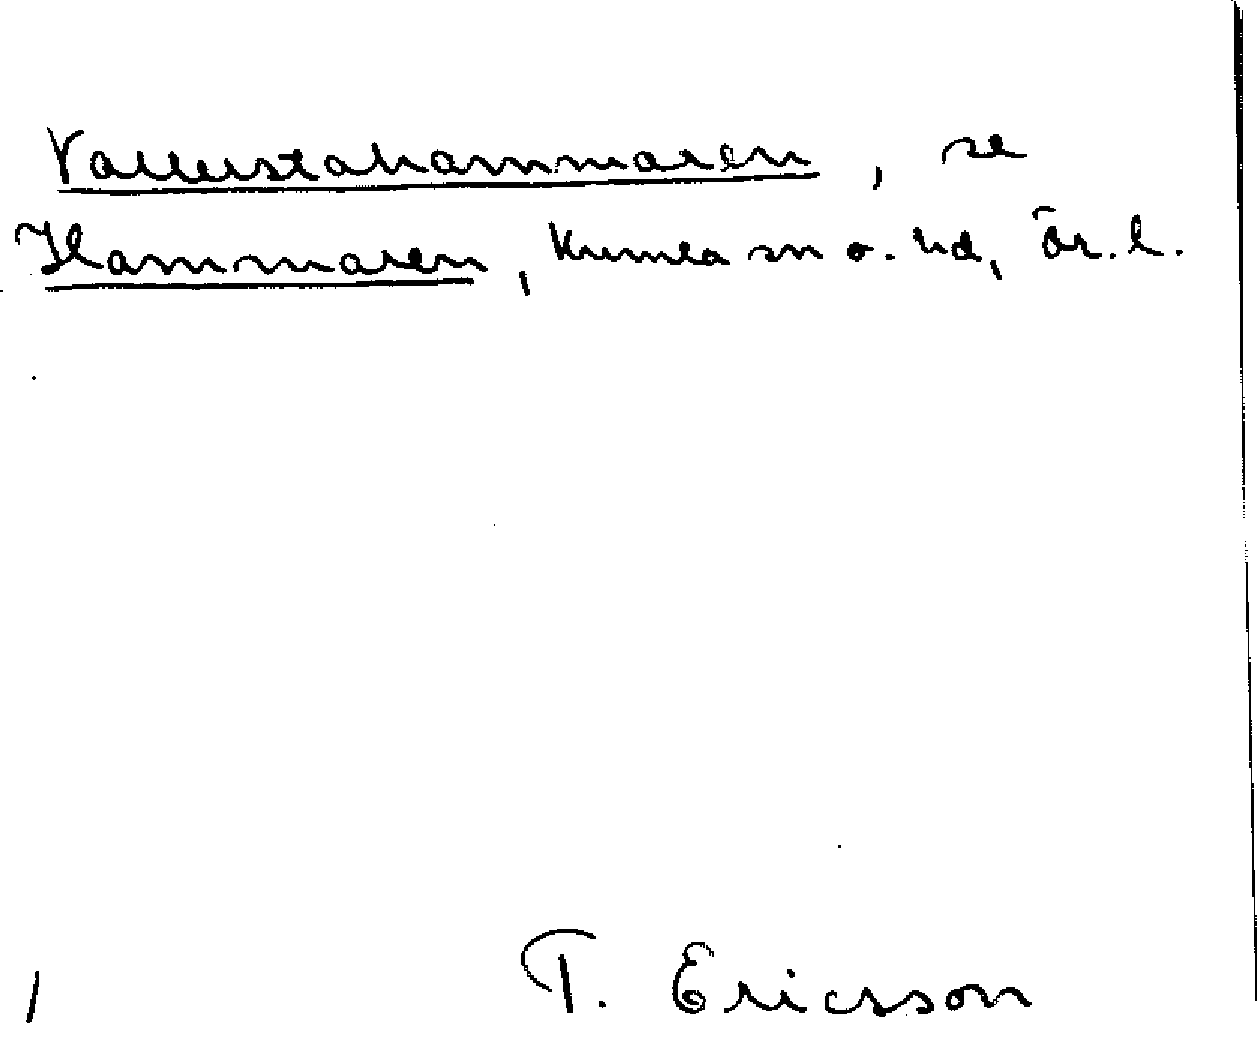 Vallerstahammaren, se
Hammaren, Kumla sn o. hd, Ör. l.
T. Ericson